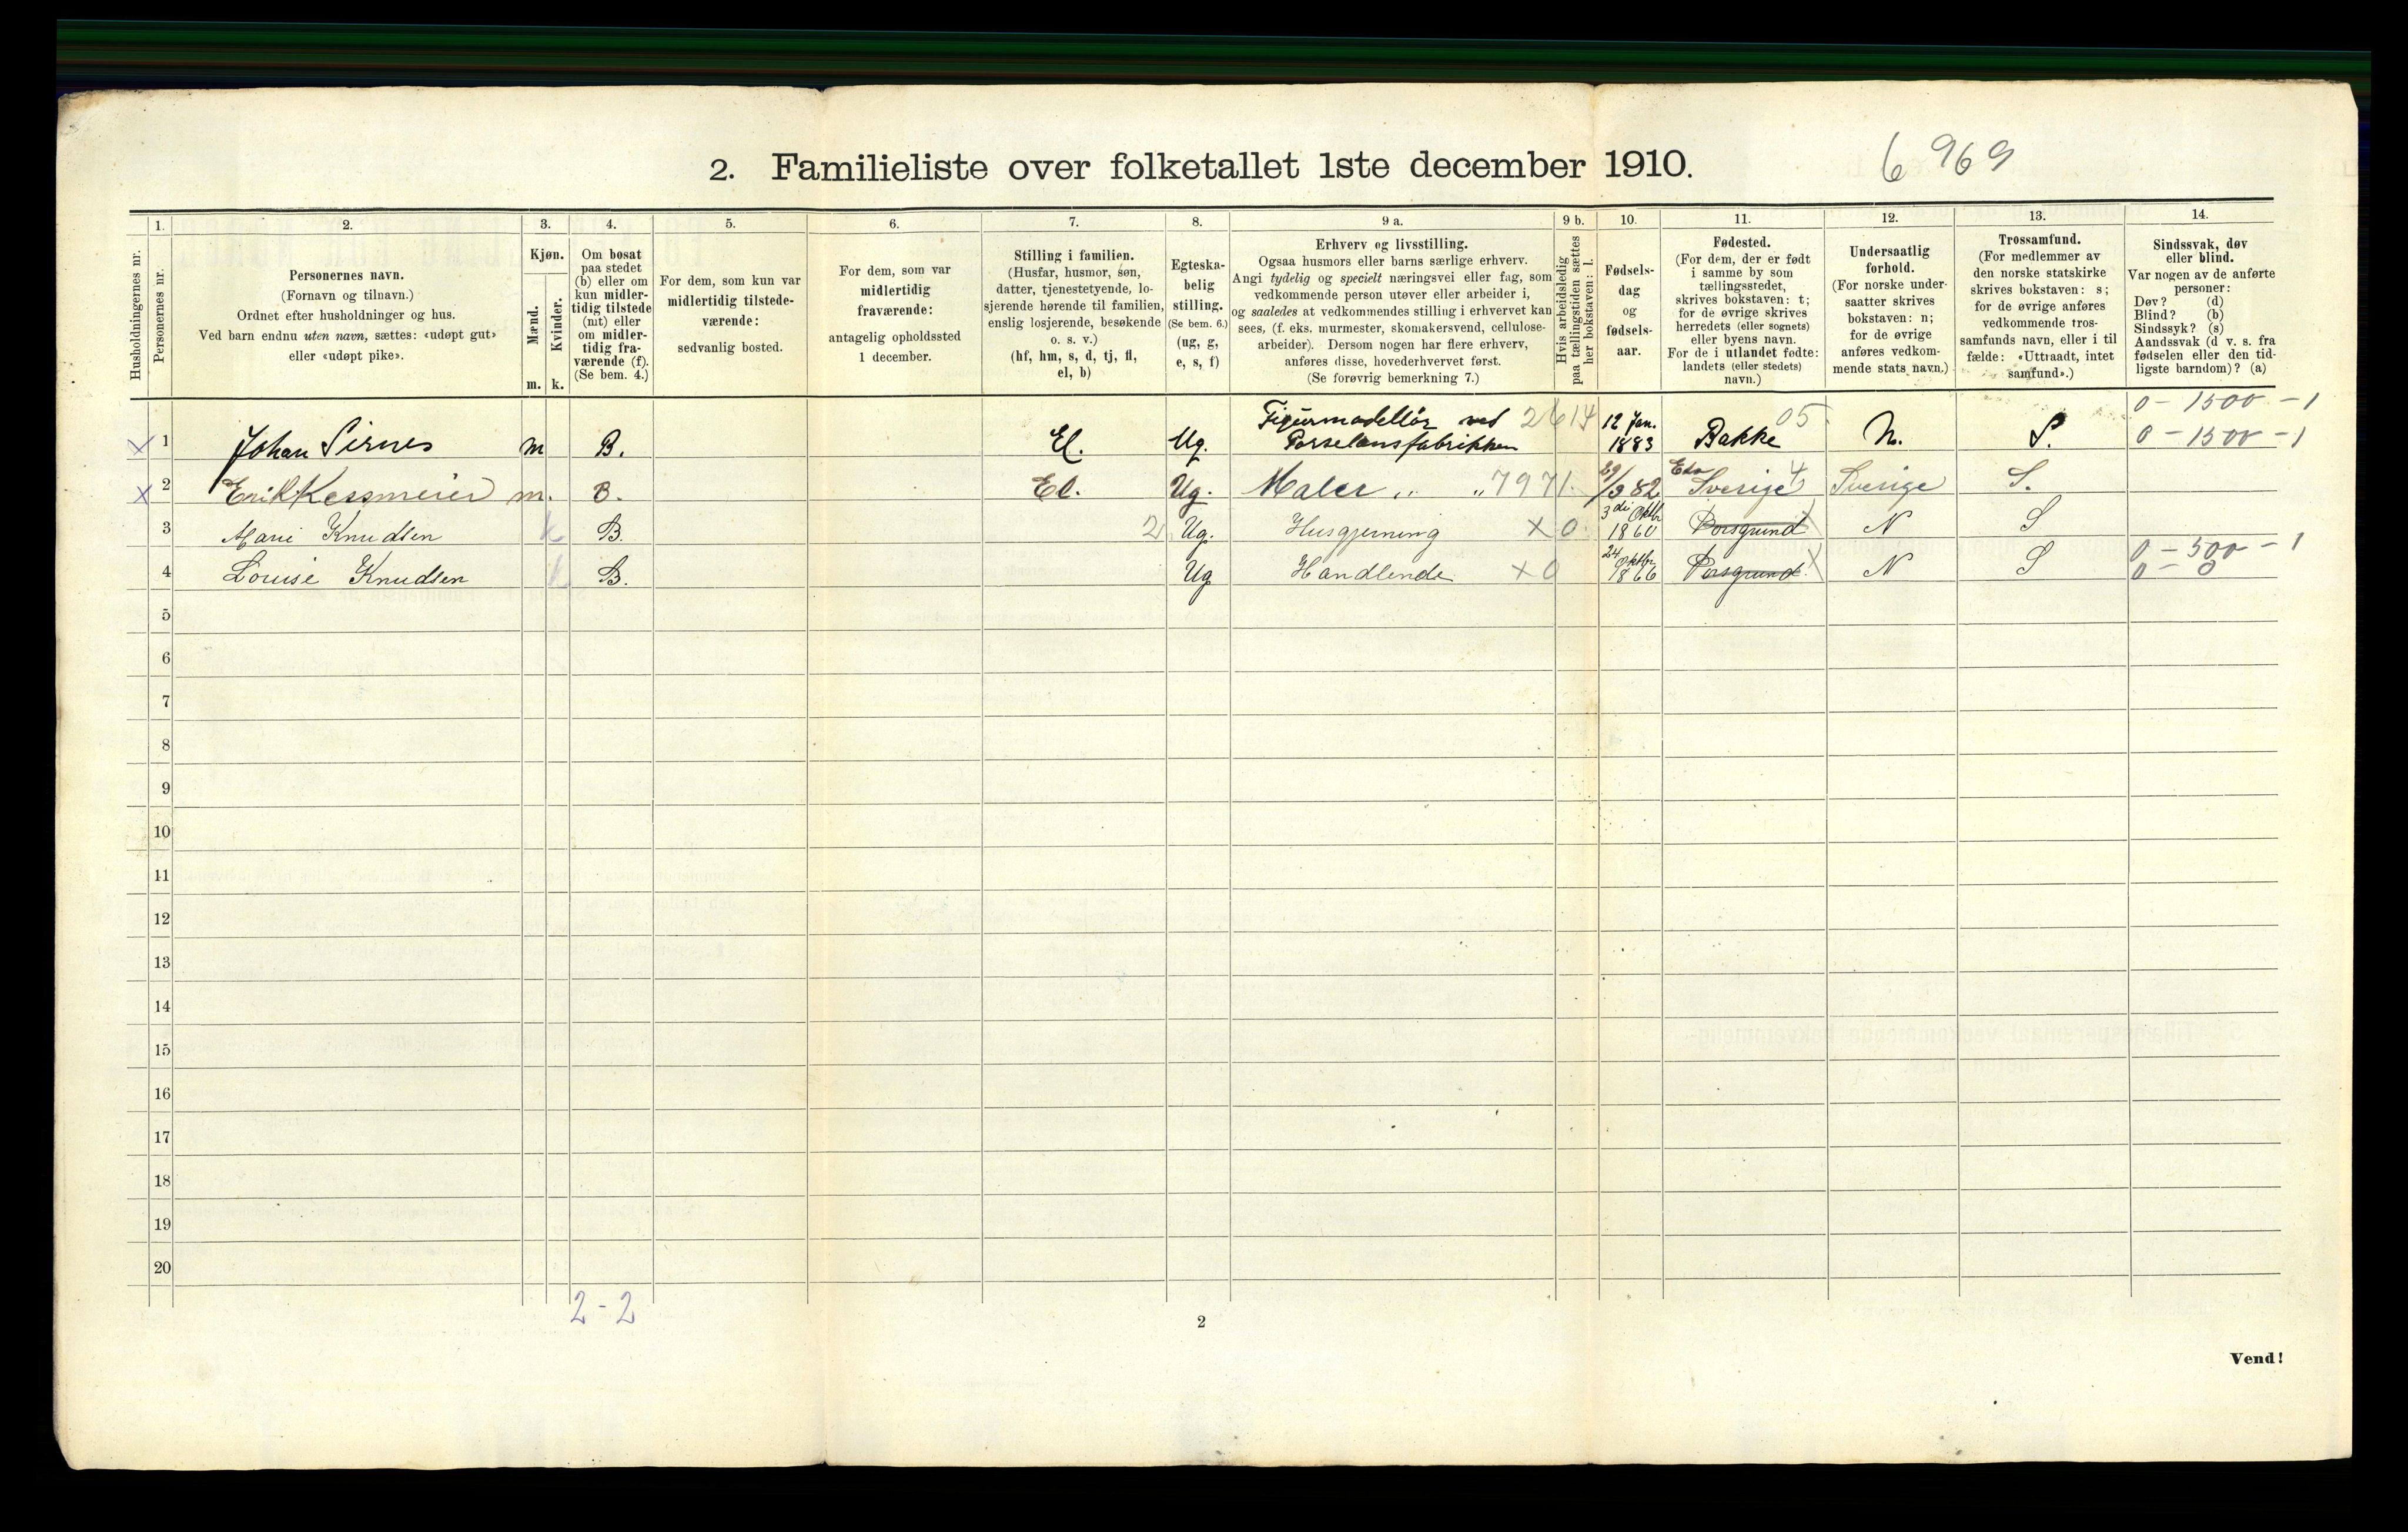 2. Familieliste over folketallet 1ste december 1910.
6 969
Husholdningernes nr.
1.
Personernes nr.
2.
Personernes navn.
(Fornavn og tilnavn.)
Ordnet efter husholdninger og hus.
Ved barn endnu uten navn, sættes: «udøpt gut»
eller «udøpt pike».
3.
Kjøn.
Mænd.
Kvinder.
m. k.
4.
Om bosat
paa stedet
(b) eller om
kun midler-
tidig tilstede
(mt) eller
om midler-
tidig fra-
værende (f).
(Se bem. 4.)
5.
For dem, som kun var
midlertidig tilstede-
værende:
sedvanlig bosted.
6.
For dem, som var
midlertidig
fraværende:
antagelig opholdssted
1 december.
7.
Stilling i familien.
(Husfar, husmor, søn,
datter, tjenestetyende, lo-
sjerende hørende til familien,
enslig losjerende, besøkende
o. s. v.)
(hf, hm, s, d, tj, fl,
el, b)
8.
Egteska-
belig
stilling.
(Se bem. 6.)
(ug, g,
e, s, f)
9 a.
Erhverv og livsstilling.
Ogsaa husmors eller barns særlige erhverv.
Angi tydelig og specielt næringsvei eller fag, som
vedkommende person utøver eller arbeider i,
og saaledes at vedkommendes stilling i erhvervet kan
sees, (f. eks. murmester, skomakersvend, cellulose-
arbeider). Dersom nogen har flere erhverv,
anføres disse, hovederhvervet først.
(Se forøvrig bemerkning 7.)
9 b.
Hvis arbeidsledig
paa tællingstiden sættes
her bokstaven: l.
10.
Fødsels-
dag
og
fødsels-
aar.
11.
Fødested.
(For dem, der er født
i samme by som
tællingsstedet,
skrives bokstaven: t;
for de øvrige skrives
herredets (eller sognets)
eller byens navn.
For de i utlandet fødte:
landets (eller stedets)
navn.)
12.
Undersaatlig
forhold.
(For norske under-
saatter skrives
bokstaven: n;
for de øvrige
anføres vedkom-
mende stats navn.)
13.
Trossamfund.
(For medlemmer av
den norske statskirke
skrives bokstaven: s;
for de øvrige anføres
vedkommende tros-
samfunds navn, eller i til
fælde: «Uttraadt, intet
samfund».)
14.
Sindssvak, døv
eller blind.
Var nogen av de anførte
personer:
Døv? (d)
Blind? (b)
Sindssyk? (s)
Aandssvak (d v. s. fra
fødselen eller den tid-
ligste barndom)? (a)
Figurmodellør ved 2614 12 Jan. 05 0 - 1500 - 1
x 1 Johan Sirnes m B. El. Ug. Porselænsfabrikken 1883 Bakke N. S. 0 - 1500 - 1
x 2 Erik Kessmeier m. B. El. Ug. Maler „ „ 7971. 29/9 82 Sverige 4 Sverige S.
3 Marie Knudsen k B. 2 Ug. Husgjerning x 0 3di Oktbr 1860 Porsgrund N S
0 - 500 - 1
4 Louise Knudsen k B. Ug Handlende x 0 24 Oktbr 1866 Porsgrund N S 0 - 0
5
6
7
8
9
10
11
12
13
14
15
16
17
18
19
20
2 - 2
2
Vend!